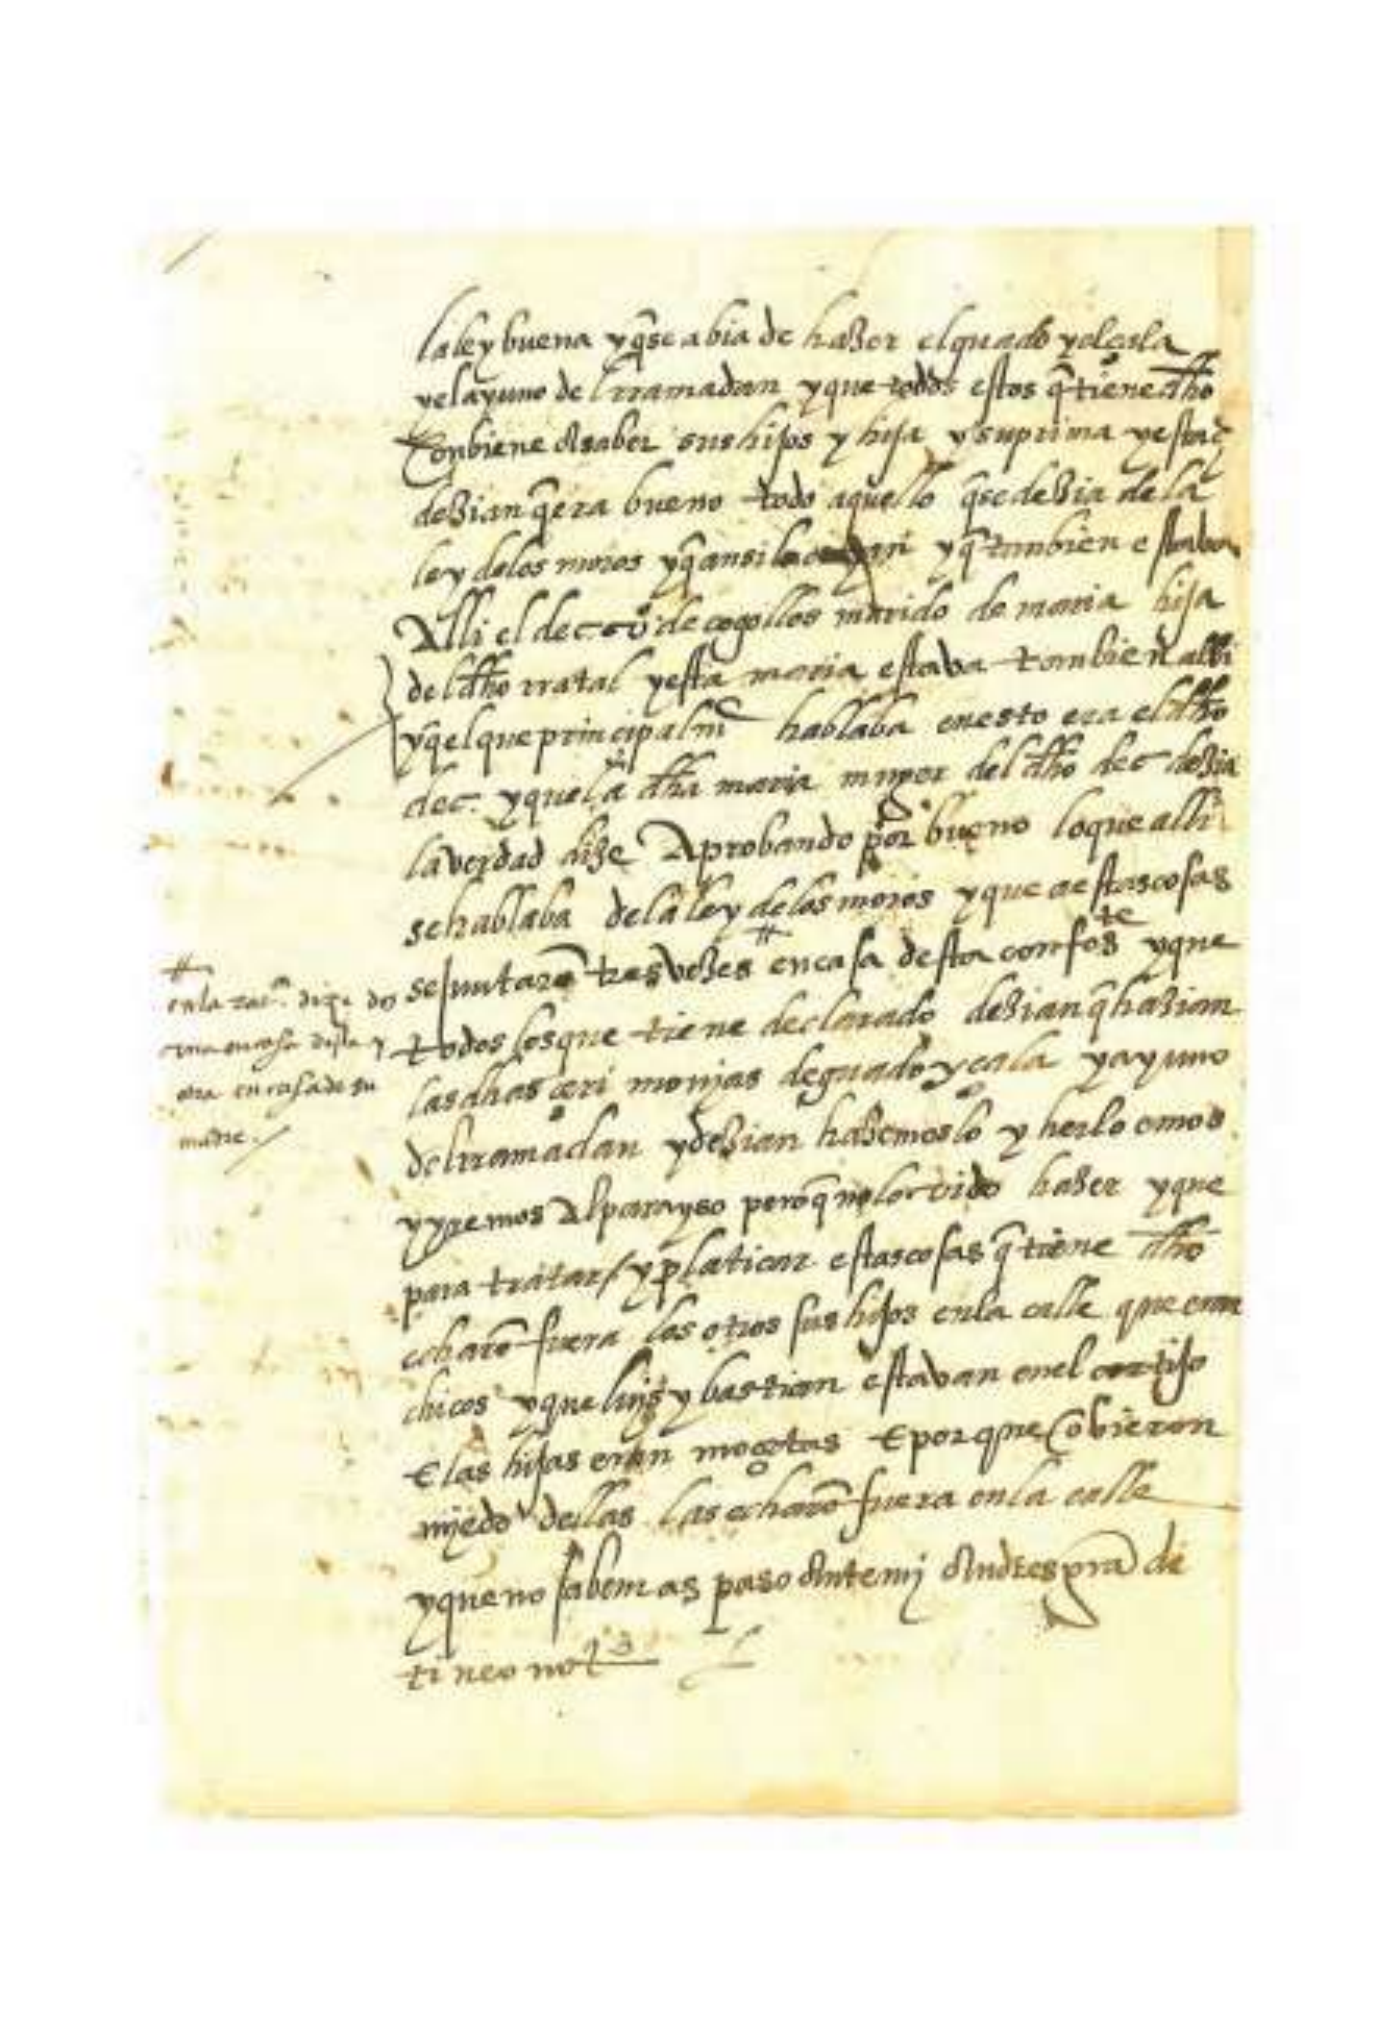 la ley buena y q̃ se abia de hazer el guado y el çala
y el ayuno del rramadan y que todos estos q̃ tiene dho
conbiene a saber sus hijos y hija y su prima y esta cº
dezian q̃ era bueno todo aquello q̃ se dezia de la
ley de los moros y q̃ ansi y q̃ tambien estaba
Alli el de cogollos marido de maria hija
del dho rratal y esta maria estava tambien alli
y q̃ el que principalmẽ hablaba en esto era el dho
dec. y que la dha maria muger del dho dec dezia
la verdad dize Aprobando por bueno lo que alli
se hablaba de la ley de los moros y que a estas cosas
se juntarõ tres vezes en casa desta confeste y que
todos los que tiene declarado dezian q̃ hazian
las dhas çerimonias de guado y çala y ayuno
del rramadan y dezian hazemoslo y herlo emos
y yremos Al parayso pero q̃ no lo vido hazer y que
para tratar y platicar estas cosas q̃ tiene dho
echarõ fuera los otros sus hijos en la calle que eran
chicos y que luys y bastian estavan en el cortijo
E las hijas eran moçotas E por que obieron
miedo dellas las echarõ fuera en la calle
y que no sabe mas paso Ante mj Andres de
tineo notº
en la dize do
una en casa desta y
otra en casa de su
madre.